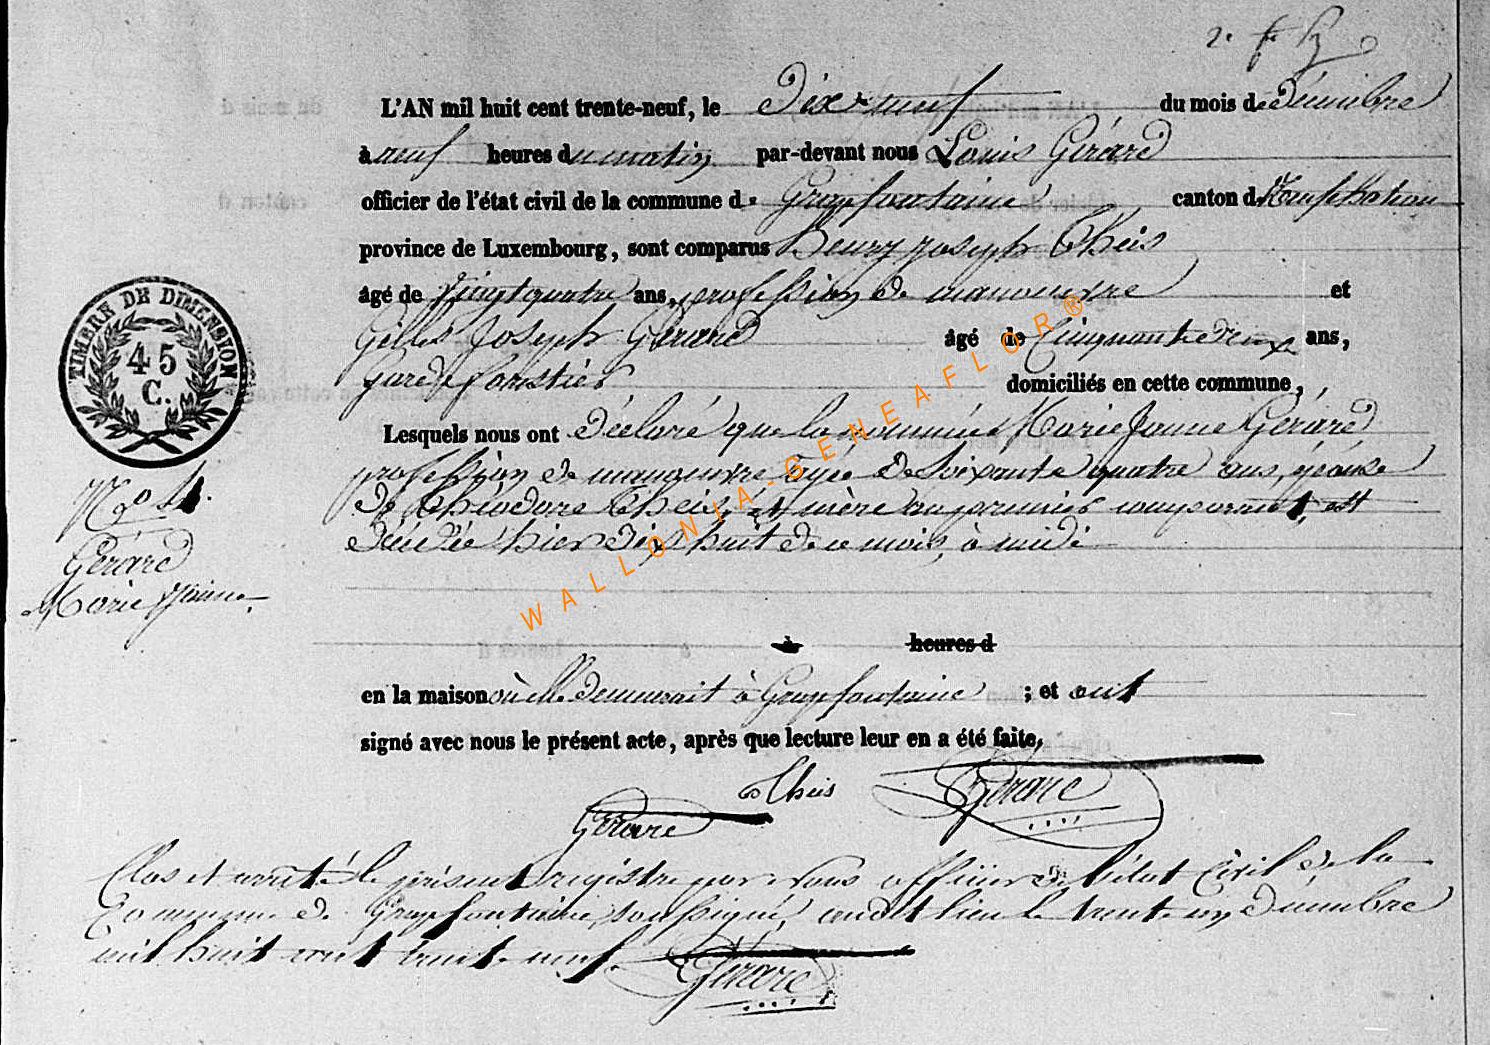 2e
L'AN mil huit cent trente-neuf, le Dix-neuf du mois de Décembre
à neuf heures du matin par-devant nous Louis Gérard
officier de l'état civil de la commune de Grapfontaine canton de Neufchateau
province de Luxembourg, sont comparus henry joseph Theis
âgé de Vingt quatre ans, profession de manouvre et
Gilles Joseph Gérard âgé de Cinquante deux ans,
garde forestier domiciliés en cette commune,
Lesquels nous ont déclaré que la nommée Marie Jeanne Gérard
profession de manouvre agée de Soixante quatre ans, épouse
de théodore theis, et mère au premier comparant, est
décédée hier dix huit de ce mois, à midi
à heures d
en la maison où elle demeurait à Grapfontaine ; et ont
signé avec nous le présent acte, après que lecture leur en a été faite,
Theis Gérard
Gerard
Clos et arrêté le présent registre par nous officier de l'état Civil de la
Commune de Grapfontaine, soussigné, audit lieu le trente un décembre
mil huit cent trente-neuf. Gérard
TIMBRE DE DIMENSION
45
C.
Gérard
Marie Jeanne
WALLONIA-GENEAFLOR®